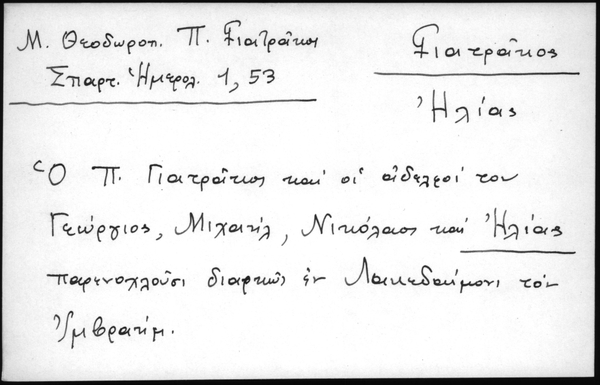 Μ. Θεοδωροπ. Π. Γιατρᾶκος
Σπαρτ. Ἡμερολ. 1, 53
Γιατρᾶκος
Ἠλίας
Ὁ Π. Γιατρᾶκος καί οἱ ἀδελφοί του
Γεώργιος, Μιχαήλ, Νικόλαος καί Ἠλίας
παρενοχλοῦσι διαρκῶς ἐν Λακεδαίμονι τόν
Ἰμβραήμ.